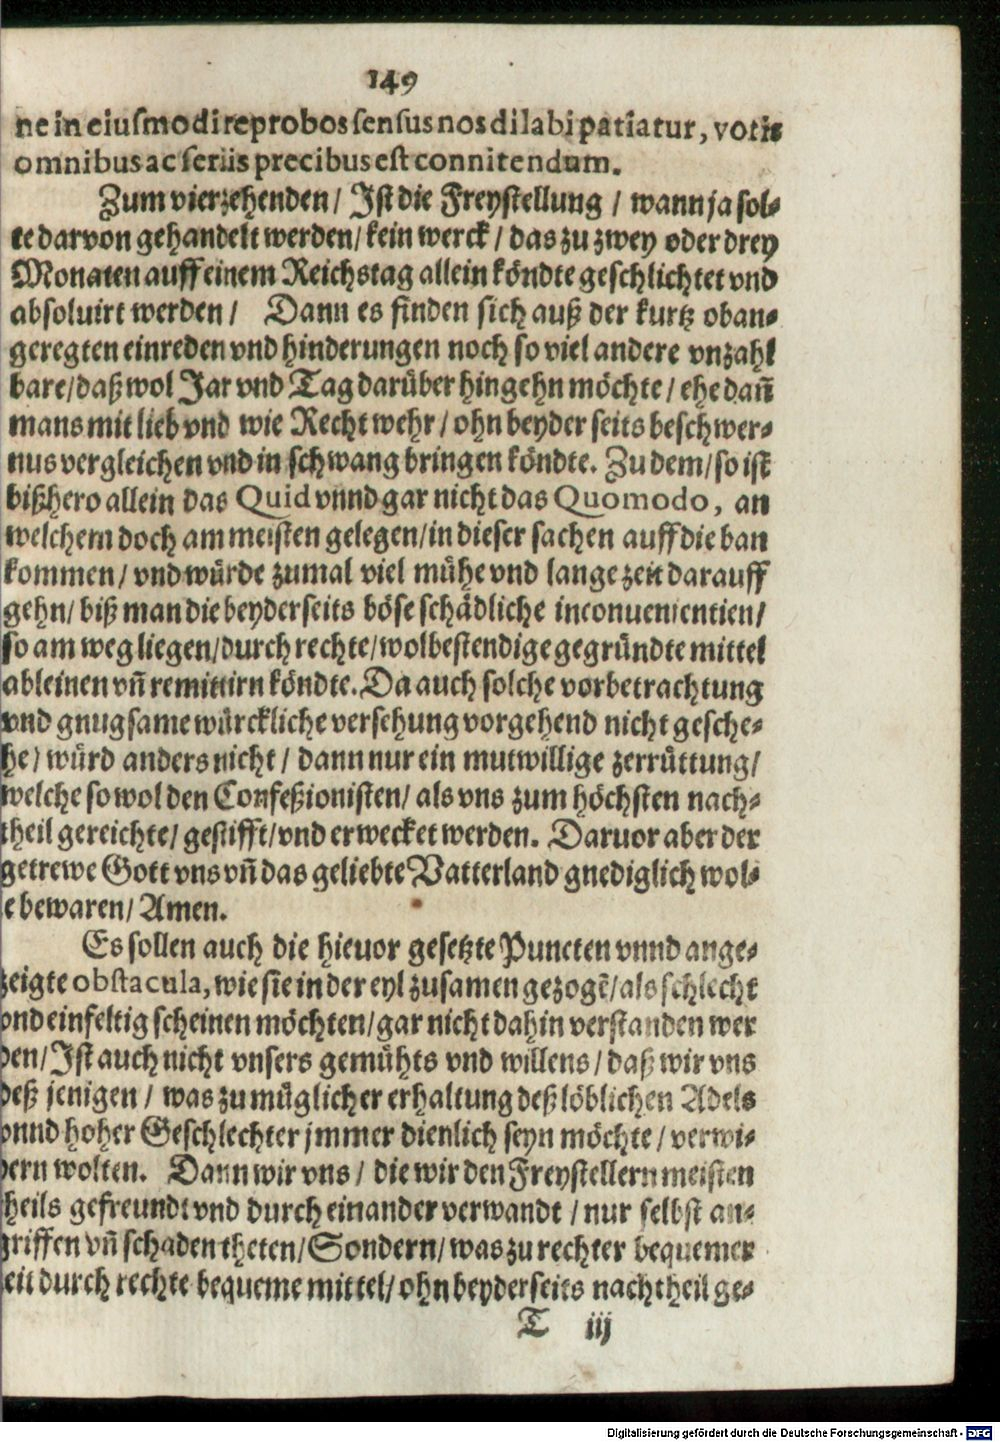 149
ne in eiusmodi reprobos sensus nos dilabi patiatur, votis
omnibus ac seriis precibus est connitendum.
Zum vierzehenden / Ist die Freystellung / wann ja sol-
te darvon gehandelt werden / kein werck / das zu zwey oder drey
Monaten auff einem Reichstag allein köndte geschlichtet vnd
absoluirt werden / Dann es finden sich auß der kurtz oban-
geregten einreden vnd hinderungen noch so viel andere vnzahl
bare / daß wol Jar vnd Tag darüber hingehn möchte / ehe dañ
mans mit lieb vnd wie Recht wehr / ohn beyder seits beschwer-
nus vergleichen vnd in schwang bringen köndte. Zu dem / so ist
bißhero allein das Quid vnnd gar nicht das Quomodo, an
welchem doch am meisten gelegen / in dieser sachen auff die ban
kommen / vnd würde zumal viel mühe vnd lange zeit darauff
gehn / biß man die beyderseits böse schädliche inconuenientien /
so am weg liegen / durch rechte / wolbestendige gegründte mittel
ableinen vñ remittirn köndte. Da auch solche vorbetrachtung
vnd gnugsame würckliche versehung vorgehend nicht gesche-
he / würd anders nicht / dann nur ein mutwillige zerrüttung /
welche so wol den Confeßionisten / als vns zum höchsten nach-
theil gereichte / gestifft / vnd erwecket werden. Daruor aber der
getrewe Gott vns vñ das geliebte Vatterland gnediglich wol-
e bewaren / Amen.
Es sollen auch die hieuor gesetzte Puncten vnnd ange-
zeigte obstacula, wie sie in der eyl zusamen gezogẽ / als schlecht
vnd einfeltig scheinen möchten / gar nicht dahin verstanden wer
den / Ist auch nicht vnsers gemühts vnd willens / daß wir vns
deß jenigen / was zu müglicher erhaltung deß löblichen Adels
vnnd hoher Geschlechter jmmer dienlich seyn möchte / verwi-
dern wolten. Dann wir vns / die wir den Freystellern meisten
theils gefreundt vnd durch einander verwandt / nur selbst an-
griffen vñ schaden theten / Sondern / was zu rechter bequemer
eit durch rechte bequeme mittel / ohn beyderseits nachtheil ge-
T iij
Digitalisierung gefördert durch die Deutsche Forschungsgemeinschaft - DFG